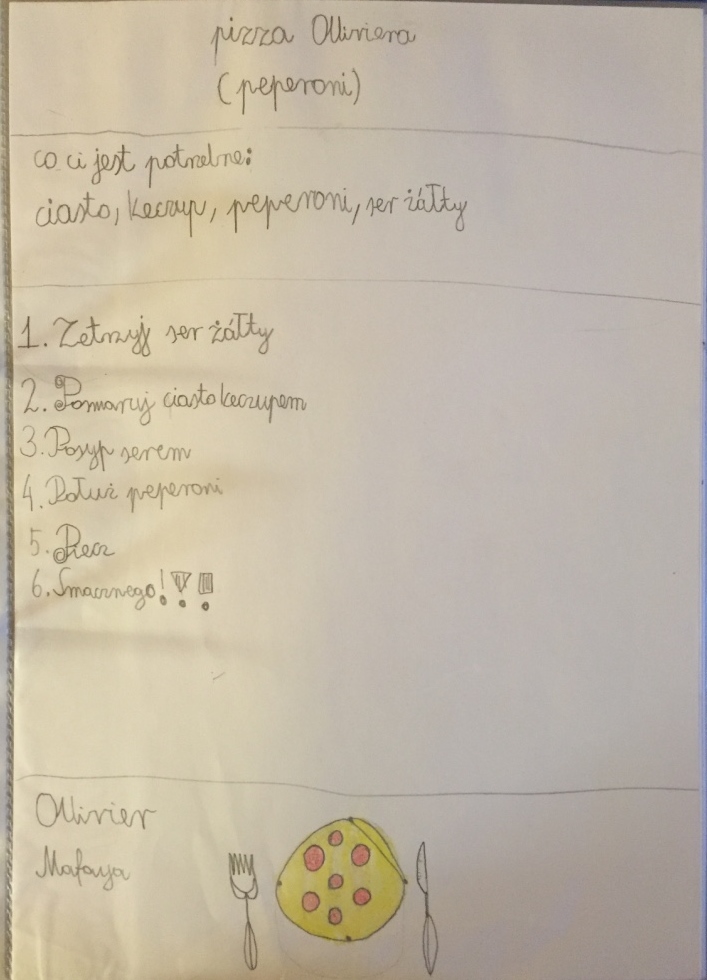 pizza Olliviera
(peperoni)
co ci jest potrzebne:
ciasto, keczup, peperoni, ser żáłty
1. Zetrzyj ser żáłty
2. Posmaruj ciasto keczupem
3. Posyp serem
4. Połuż peperoni
5. Piecz
6. Smacznego!!!
Ollivier